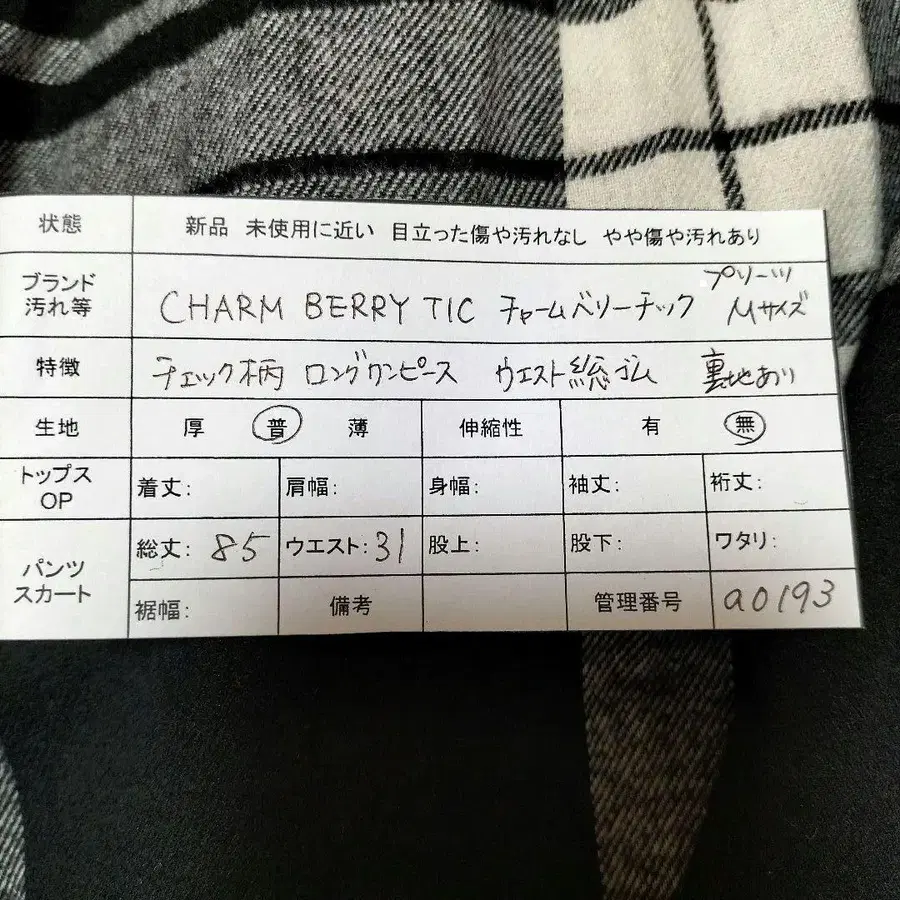 状態 新品 未使用に近い 目立った傷や汚れなし やや傷や汚れあり
ブランド プリーツ
汚れ等 CHARM BERRY TIC チャームベリーチック Mサイズ
特徴 チェック柄 ロングワンピース ウエスト総ゴム 裏地あり
生地 厚 普 薄 伸縮性 有 無
トップス
OP 着丈: 肩幅: 身幅: 袖丈: 裄丈:
総丈: 85 ウエスト: 31 股上: 股下: ワタリ:
パンツ
スカート
裾幅: 備考 管理番号 a0193